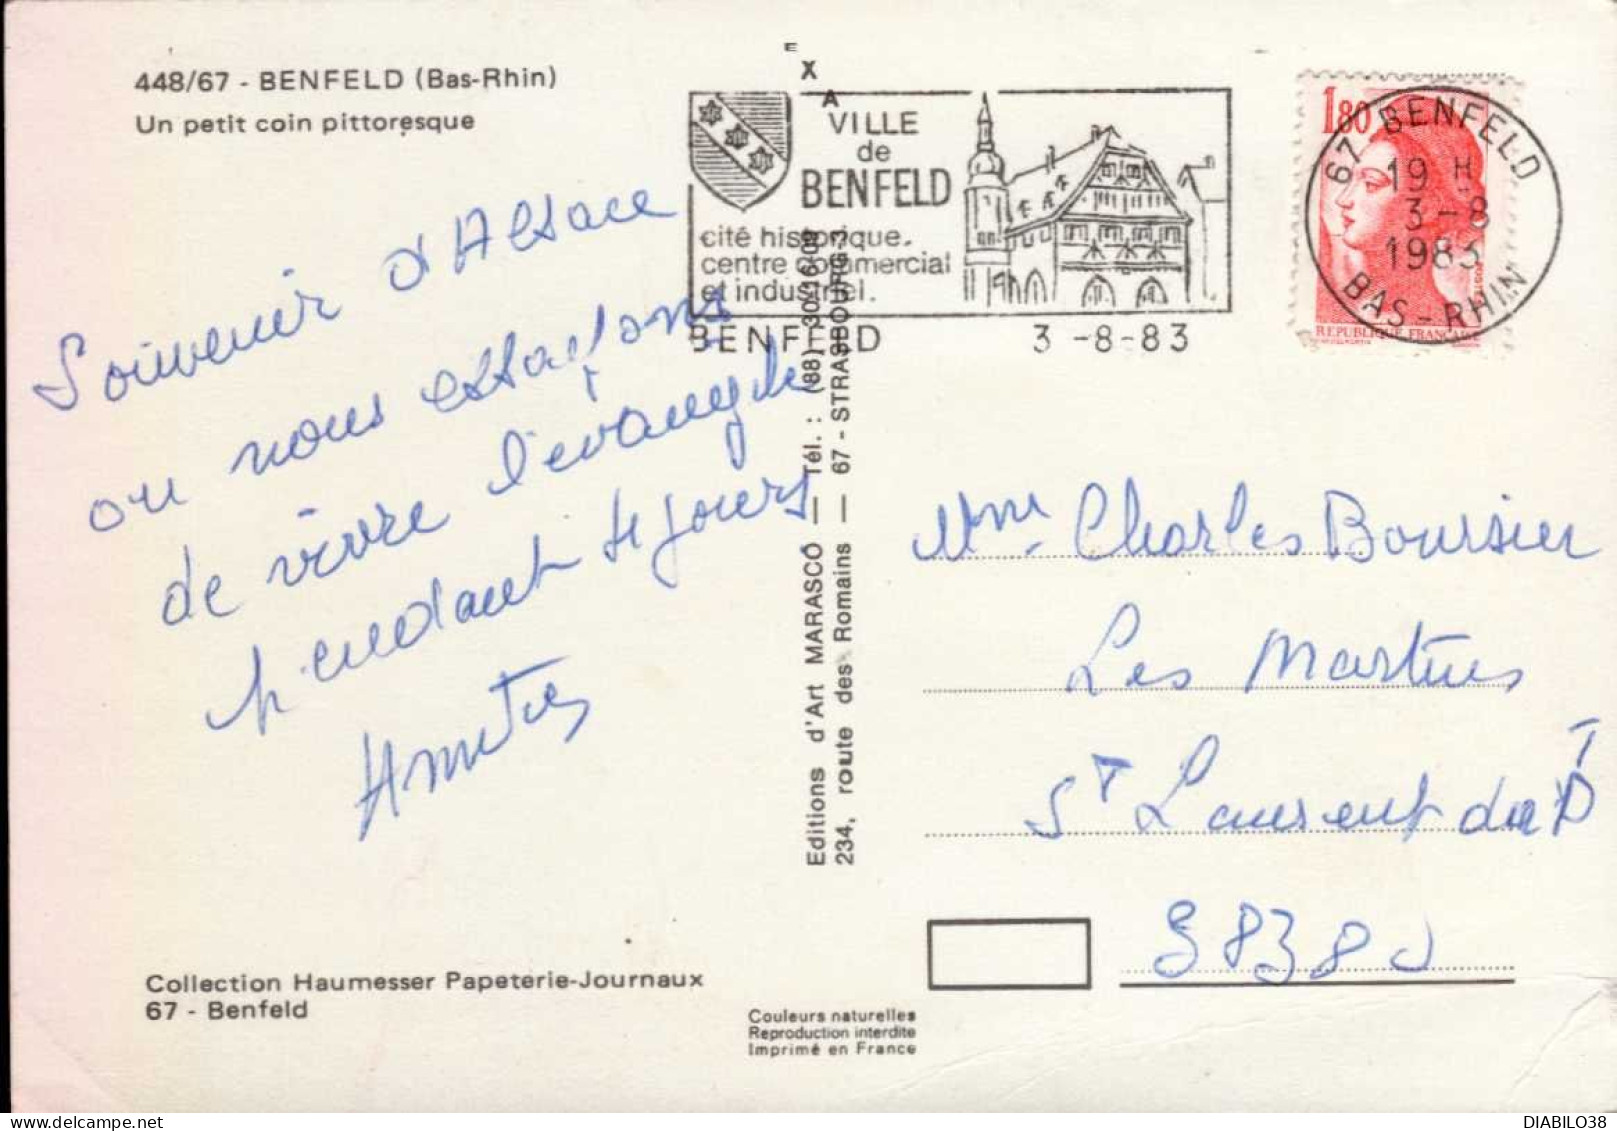 448/67 - BENFELD (Bas-Rhin)
Un petit coin pittoresque
E
X
A
VILLE
de
BENFELD
cité historique.
centre commercial
et industriel.
BENFELD 3 -8-83
1,80
REPUBLIQUE FRANÇAISE
67 BENFELD
19 H
3-8
1983
BAS-RHIN
Souvenir d'Alsace
ou nous essayons
de vivre l'évangile
pendant 4 jours
Amitiés
Editions d'Art MARASCO — Tél. : (88) 30.16.09
234, route des Romains — 67 - STRASBOURG 3
Mme Charles Boursier
Les Martins
St Laurent du Pt
38380
Collection Haumesser Papeterie-Journaux
67 - Benfeld
Couleurs naturelles
Reproduction interdite
Imprimé en France
DIABILO38